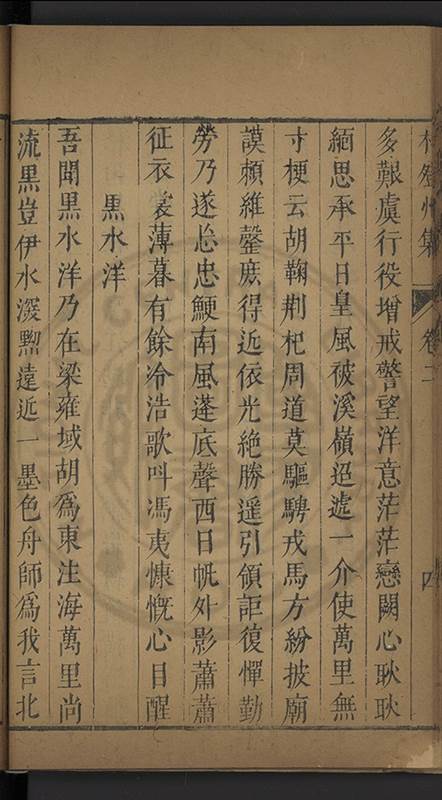 林登州集 卷二 四
多艱虞行役增戒警望洋意茫茫戀闕心耿耿
緬思承平日皇風被溪嶺迢遞一介使萬里無
寸梗云胡鞠荆杞周道莫驅騁戎馬方紛披廟
謨頼維罄庶得近依光絶勝遥引領詎復憚勤
勞乃遂怂忠鯁南風蓬底聲西日帆外影蕭蕭
征衣裳薄暮有餘冷浩歌呌馮夷慷慨心目醒
黒水洋
吾聞黒水洋乃在梁雍域胡爲東注海萬里尚
流黒豈伊水深黝遠近一墨色舟師爲我言北